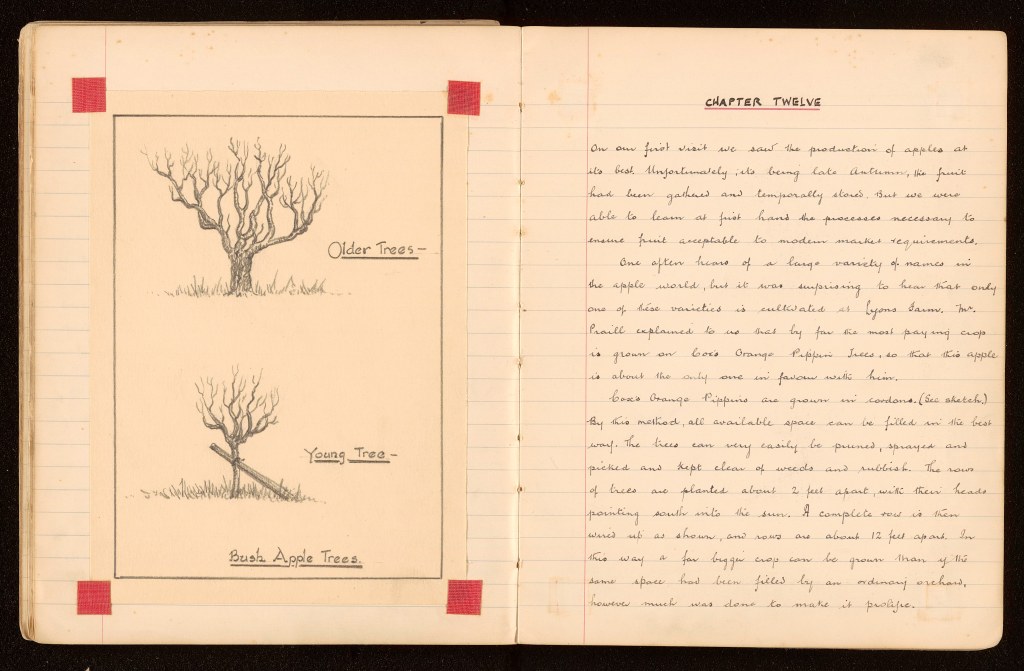 Older Trees —
Young Tree —
Bush Apple Trees.
CHAPTER TWELVE
On our first visit we saw the production of apples at
its best. Unfortunately, its being late Autumn, the fruit
had been gathered and temporally stored, But we were
able to learn at first hand the processes necessary to
ensure fruit acceptable to modern market requirements.
One often hears of a large variety of names in
the apple world, but it was surprising to hear that only
one of these varieties is cultivated at Lyons Farm. Mr.
Praill explained to us that by far the most paying crop
is grown on Cox's Orange Pippin Trees, so that this apple
is about the only one in favour with him.
Cox's Orange Pippins are grown in cordons. (See sketch.)
By this method, all available space can be filled in the best
way. The trees can very easily be pruned, sprayed and
picked and kept clear of weeds and rubbish. The rows
of trees are planted about 2 feet apart, with their heads
pointing south into the sun. A complete row is then
wired up as shown, and rows are about 12 feet apart. In
this way a far bigger crop can be grown than if the
same space had been filled by an ordinary orchard,
however much was done to make it prolific.